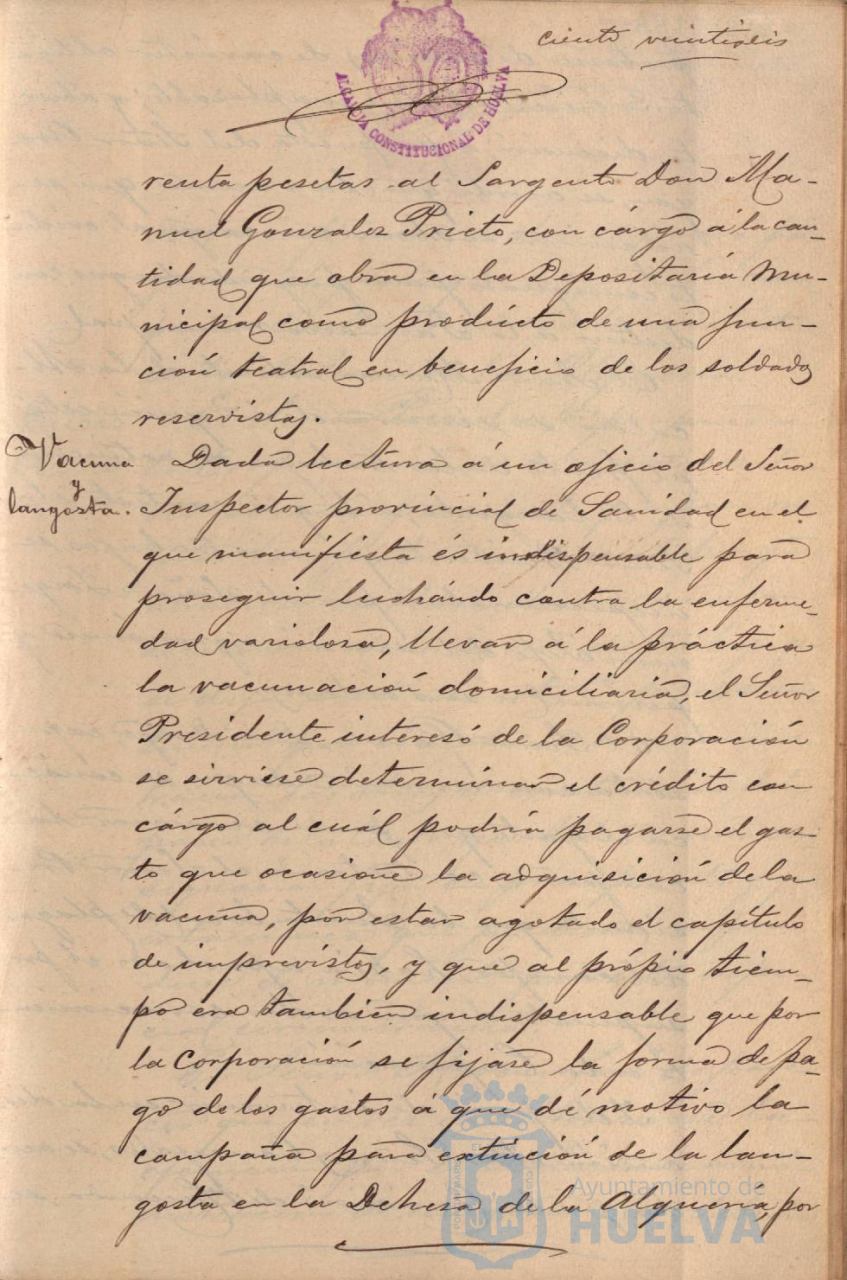 ciento veintiseis
ALCALDIA CONSTITUCIONAL DE HUELVA
renta pesetas al Sargento Don Ma-
nuel Gonzalez Prieto, con cárgo á la can-
tidad que obra en la Depositaría Mu-
nicipal como prodúcto de una fun-
ción teatral en beneficio de los soldados
reservistas.
Vacuna
y
langosta.
Dada lectura á un oficio del Señor
Inspector provincial de Sanidad en el
que manifiesta és indispensable para
proseguir luchándo contra la enferme-
dad variolosa, llevar á la práctica
la vacunación domiciliaria, el Señor
Presidente interesó de la Corporación
se sirviese determinar el crédito con
cárgo al cuál podría pagarse el gas-
to que ocasione la adquisición de la
vacuna, por estar agotado el capítulo
de imprevistos, y que al própio tiem-
po era tambien indispensable que por
la Corporación se fijase la forma de pa-
go de los gastos á que dé motivo la
campaña para extinción de la lan-
gosta en la Dehesa de la Alqueria, por
Ayuntamiento de
HUELVA